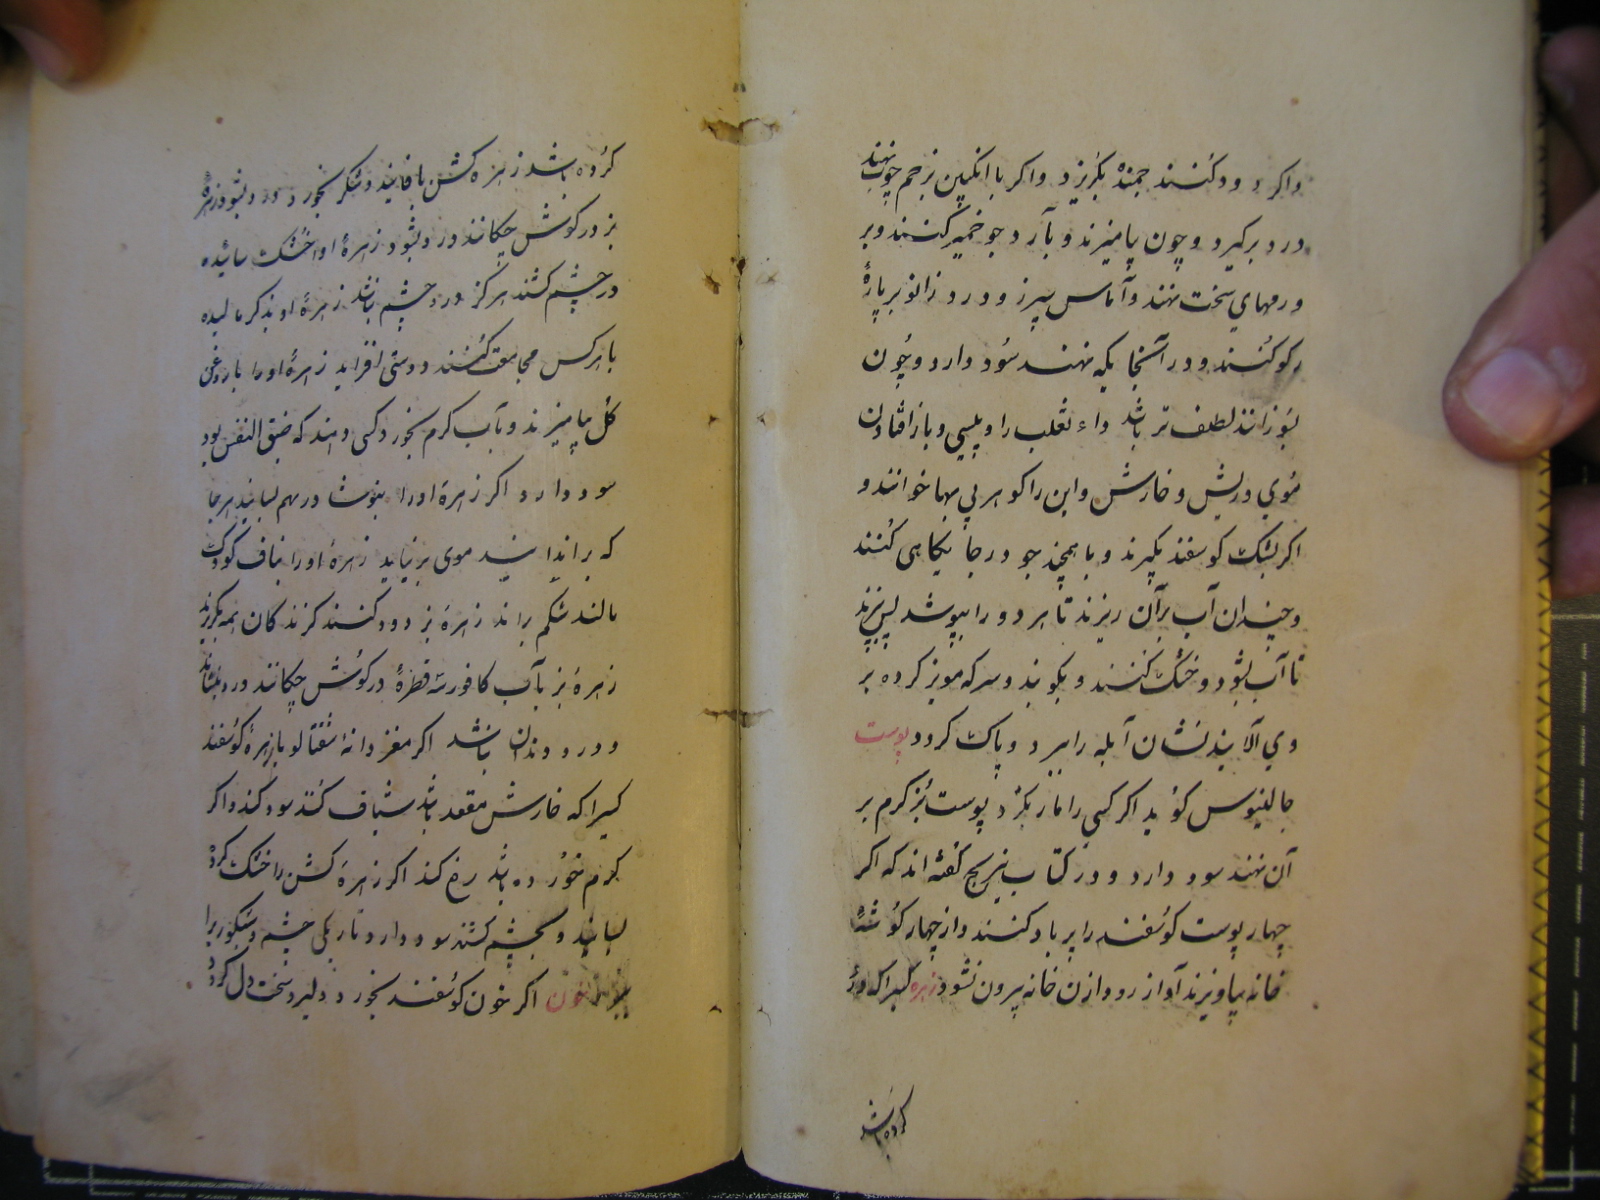 واگر دود کنند جمنده بگریزد واگر با انگبین بزخم چوب نهند
درد برگیرد و چون بیامیزند و بآرد جو خمیر کنند و بر
ورمهای سخت نهند و آماس سپرز و درد زانو بر پارهٔ
رکو کنند و در آنجا یکه نهند سود دارد و چون
بسوزانند لطیف تر باشد داء ثعلب را و پلیسی و باز افتادن
موی و ریش و خارش و این را کوهر بی بها خوانند و
اگر پشک کوسفند بگیرند و با همچند جو در جایگاهی کنند
و چندان آب بر آن ریزند تا هر دو را بپوشد پس بپزند
تا آب بشود و خشک کنند و بکوبند و سرکه مویز کرده بر
وی آلایند نشان آبله را ببرد و پاک کردد پوست
جالینوس کوید اگر کسی را مار بگزد پوست بز گرم بر
آن نهند سود دارد و در کتاب نیرنج گفته اند که اگر
چهار پوست کوسفند را پر باد کنند و از چهار کوشهٔ
خانه بیاویزند آواز رود از آن خانه بیرون نشود زهره کسیرا که
کرده باشد
کرده باشد زهره کشن با فانید و شکر بخورد بشود زهرهٔ
بز در کوش چکانند درد بشود زهرهٔ او خشک سائیده
در چشم کشند هرگز درد چشم نباشد زهرهٔ او بذکر مالیده
با هرکس مجامعت کنند دوستی افزاید زهرهٔ او را با روغن
کل بیامیزند و بآب گرم بخورد کسی دهند که ضیق النفس بود
سود دارد اگر زهرهٔ او را بنوشا در بهم بسایند هرجا
که برانداید موی برنیاید زهرهٔ او را بناف کودک
مالند شکم براند زهرهٔ بز دود کنند گزندکان همه بگریزند
زهرهٔ بز بآب کافور سه قطرهٔ در کوش چکانند درد بنشاند
و درد دندان باشد اگر مغز دانهٔ شفتالو با زهرهٔ کوسفند
کسیرا که خارش مقعد باشد شیاف کنند سود کند و اگر
کرم خورده باشد رفع کند اگر زهرهٔ کشن را خشک کرده
بسایند و بچشم کشند سود دارد تاریکی چشم و شبکور را
خون اگر خون کوسفند بخورد دلیر و سخت دل کردد